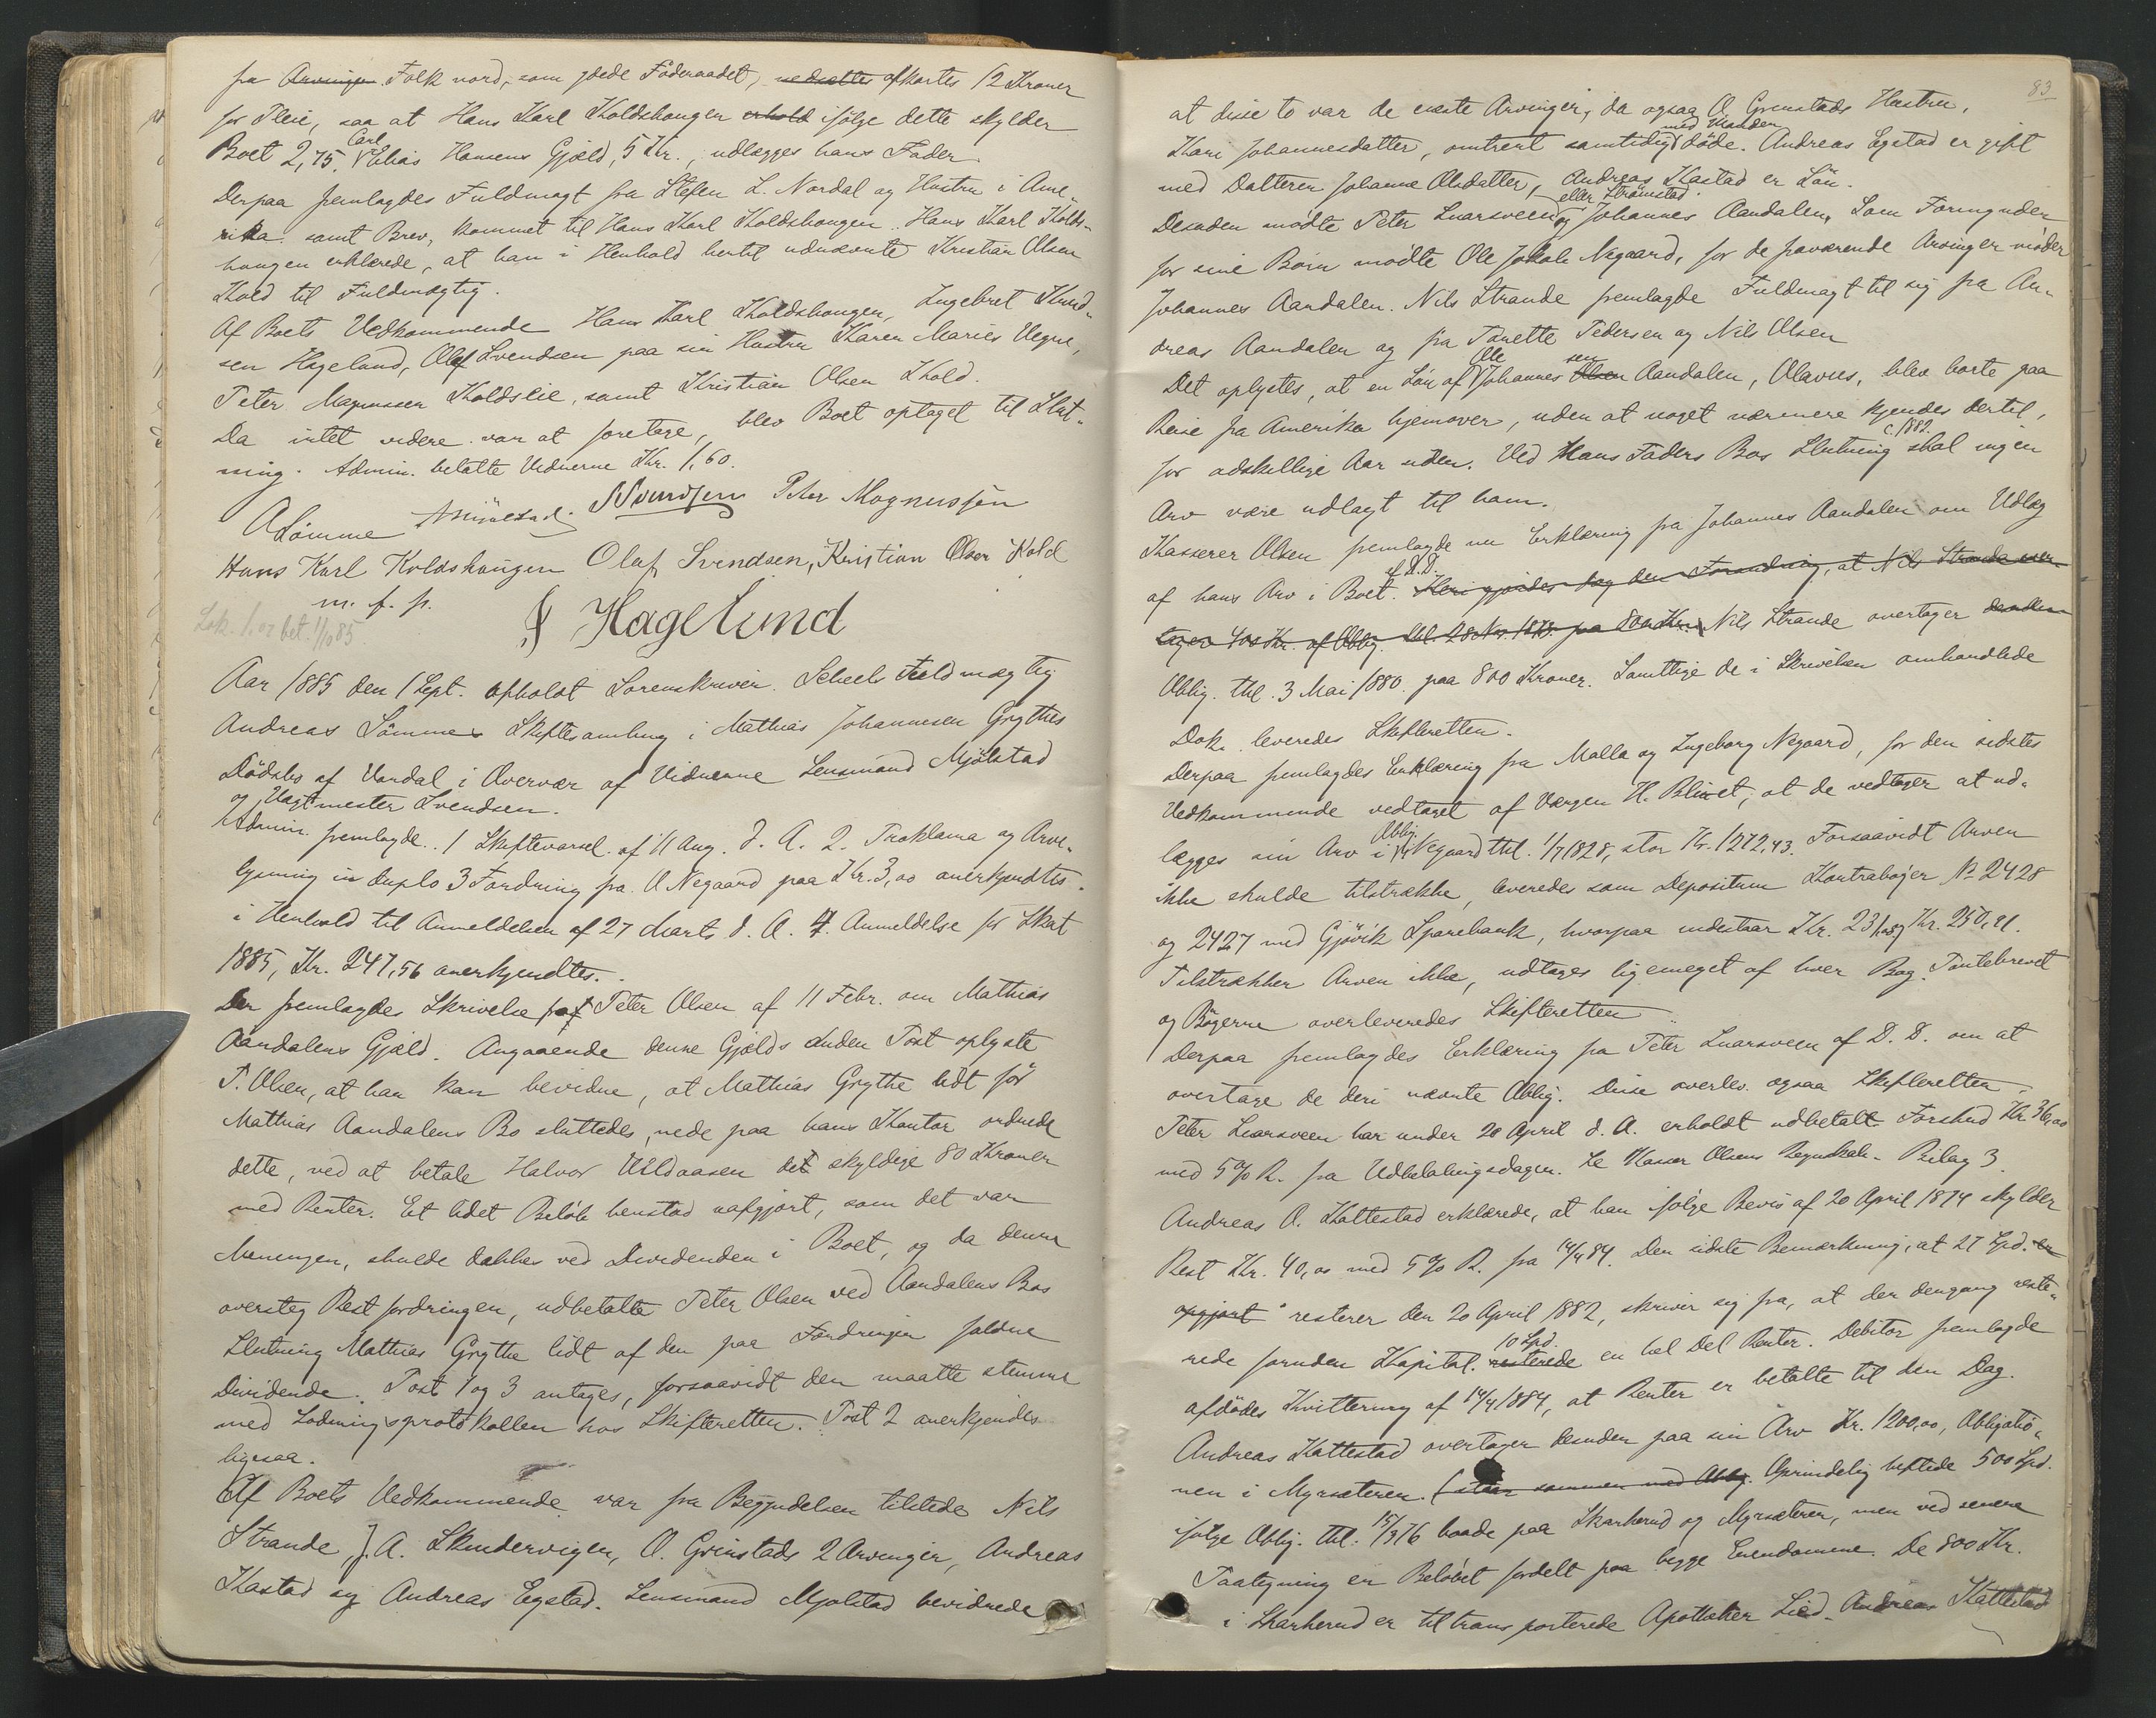 fra Arvingen Folk nord, som gjede Föderaadet, nedsattes afkortes 12 Kroner
for Pleie, saa at Hans Karl Koldshaugen erhold ifölge dette skylder
Boet 2,75. Carl Elias Hansens Gjæld, 5 Kr., udlægges hans Fader.
Derpaa fremlagdes Fuldmagt fra Steffen L. Nordal og Hustru i Ame
rika samt Brev, kommet til Hans Karl Koldshaugen. Hans Karl Kolds-
haugen erklærede, at han i Henhold hertil udnævnte Kristian Olsen
Kold til Fuldmægtig.
Af Boets Vedkommende Hans Karl Koldshaugen, Ingebret Knud-
sen Hagelund, Olaf Svendsen paa sin Hustru Karen Maries Vegne,
Peter Magnussen Koldslie, samt Kristian Olsen Kold.
Da intet videre var at foretage, blev Boet optaget til Slut-
ning. Admin. betalte Vidnerne Kr. 1,60.
A Sömme AMjölstad. NSvendsen Peter Magnussen
Hans Karl Koldshaugen Olaf Svendsen, Kristian Olsen Kold
m. f. p.
Hagelund
Sok. 1.02 bet. 1/10 85
Aar 1885 den 1 Sept. afholdt Sorenskriver Scheels Fuldmægtig
Andreas Sömme Skiftesamling i Mathias Johannesen Grythes
Dödsbo af Vardal i Overvær af Vidnerne Lensmand Mjölstad
og Vagtmester Svendsen.
Admin. fremlagde. 1 Skiftevarsel af 11 Aug. d. A. 2. Proklama og Arve-
lysning in duplo 3 Fordring fra O Negaard paa Kr. 3,00 anerkjendtes.
i Henhold til Anmeldelsen af 27 Marts d. A. 4. Anmeldelse for Skat
1885, Kr. 247,56 anerkjendtes.
Der fremlagdes Skrivelse fra Peter Olsen af 11 Febr. om Mathias
Aandalens Gjæld. Angaaende denne Gjælds anden Post oplyste
P. Olsen, at han kan bevidne, at Mathias Grythe lidt för
Mathias Aandalens Bo sluttedes, nede paa hans Kontor ordnede
dette, ved at betale Halvor Uldaasen det skyldige 80 Kroner
med Renter. Et lidet Belöb henstod uafgjort, som det var
Meningen, skulde dækkes ved Dividenden i Boet, og da denne
oversteg Restfordringen, udbetalte Peter Olsen ved Aandalens Bos
Slutning Mathias Grythe lidt af den paa Fordringen faldne
Dividende. Post 1 og 3 antages, forsaavidt den maatte stemme
med Lodningsprotokollen hos Skifteretten. Post 2 anerkjendes
ligesaa.
Af Boets Vedkommende var fra Begyndelsen tilstede Nils
Strande, J. A. Skindervigen, O. Grinstads 2 Arvinger, Andreas
Kastad og Andreas Egstad. Lensmand Mjolstad bevidnede
83
at disse to var de eneste Arvinger, da ogsaa O. Grenstads Hustru,
Kari Johannesdatter, omtrent samtidigt med Manden döde. Andreas Egstad er gift
med Datteren Johanne Olsdatter, Andreas Kastad er Sön.
Desuden mödte Peter Snarsveen eller Strömstad og Johannes Aandalen. Som Formynder
for sine Börn mödte Ole Jakob Negaard, for de fraværende Arvinger möder
Johannes Aandalen. Nils Strande fremlagde Fuldmagt til sig fra An-
dreas Aandalen og fra Tonette Pedersen og Nils Olsen
Det oplystes, at en Sön af Ole Johannessen Olsen Aandalen, Olavus, blev borte paa
Reise fra Amerika hjemover, uden at noget nærmere kjendes dertil,
for adskillige Aar siden. Ved Hans Faders Bos Slutning c. 1882. skal ingen
Arv være udlagt til ham.
Kasserer Olsen fremlagde nu Erklæring fra Johannes Aandalen om Udlæg
af hans Arv i Boet. af D.D. Heri gjordes dog den Forandring, at Nils Strande over-
tager 400 Kr. af Oblig. thl. 28 Nov. 1878 paa 800 Kr. Nils Strande overtager desuden
Oblig. thl. 3 Mai 1880 paa 800 Kroner. Samtlige de i Skrivelsen omhandlede
Dok. leveredes Skifteretten.
Derpaa fremlagdes Erklæring fra Malla og Ingeborg Negaard, for den sidstes
Vedkommende vedtaget af Værgen H. Blixet, at de vedtager at ud-
lægges sin Arv i Oblig. Negaard thl. 1/7 1828, stor Kr. 1272,43. Forsaavidt Arven
ikke skulde tilstrække, leveredes som Depositum Kontraböger No 2428
og 2427 med Gjövik Sparebank, hvorpaa indestaar Kr. 231,87 Kr. 250,21.
Tilstrækker Arven ikke, udtages ligemeget af hver Bog. Pantebrevet
og Bögerne overleveredes Skifteretten.
Derpaa fremlagdes Erklæring fra Peter Snarsveen af D. D. om at
overtage de deri nævnte Oblig. Disse overlev. ogsaa Skifteretten.
Peter Snarsveen har under 20 April d. A. erholdt udbetalt Forskud Kr. 36,00
med 5 % R. fra Udbetalingsdagen. Se Kasser Olsens Regnskab - Bilag 3.
Andreas O. Kattestad erklærede, at han ifölge Bevis af 20 April 1874 skylder
Rest Kr. 40,00 med 5 % R. fra 14/4 84. Den sidste Bemærkning, at 27 Spd. er
opgjort resterer den 20 April 1882, skriver sig fra, at der dengang reste-
rede foruden Kapital. resterede 10 Spd. en hel Del Renter. Debitor fremlagde
afdödes Kvittering af 14/4 1884, at Renter er betalte til den Dag.
Andreas Kattestad overtager desuden paa sin Arv Kr. 1200,00, Obligatio-
nen i Myrsæteren. (staar sammen med Oblig. Oprindelig heftede 500 Spd.
ifölge Oblig. thl. 15/3 76 baade paa Skarherud og Myrsæteren, men ved senere
Paategning er Belöbet fordelt paa begge Eiendomme. De 800 Kr.
i Skarherud er til transporterede Apotheker Lied. Andreas Kattestad